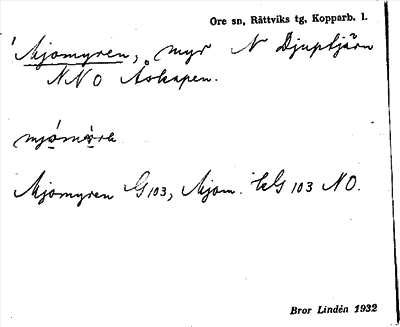 Ore sn, Rättviks tg, Kopparb. l.
Mjomyren, myr N Djuptjärn
NNO Åskapen.
Mjomyren G103, Mjom. kG 103 NO.
Bror Lindén 1932